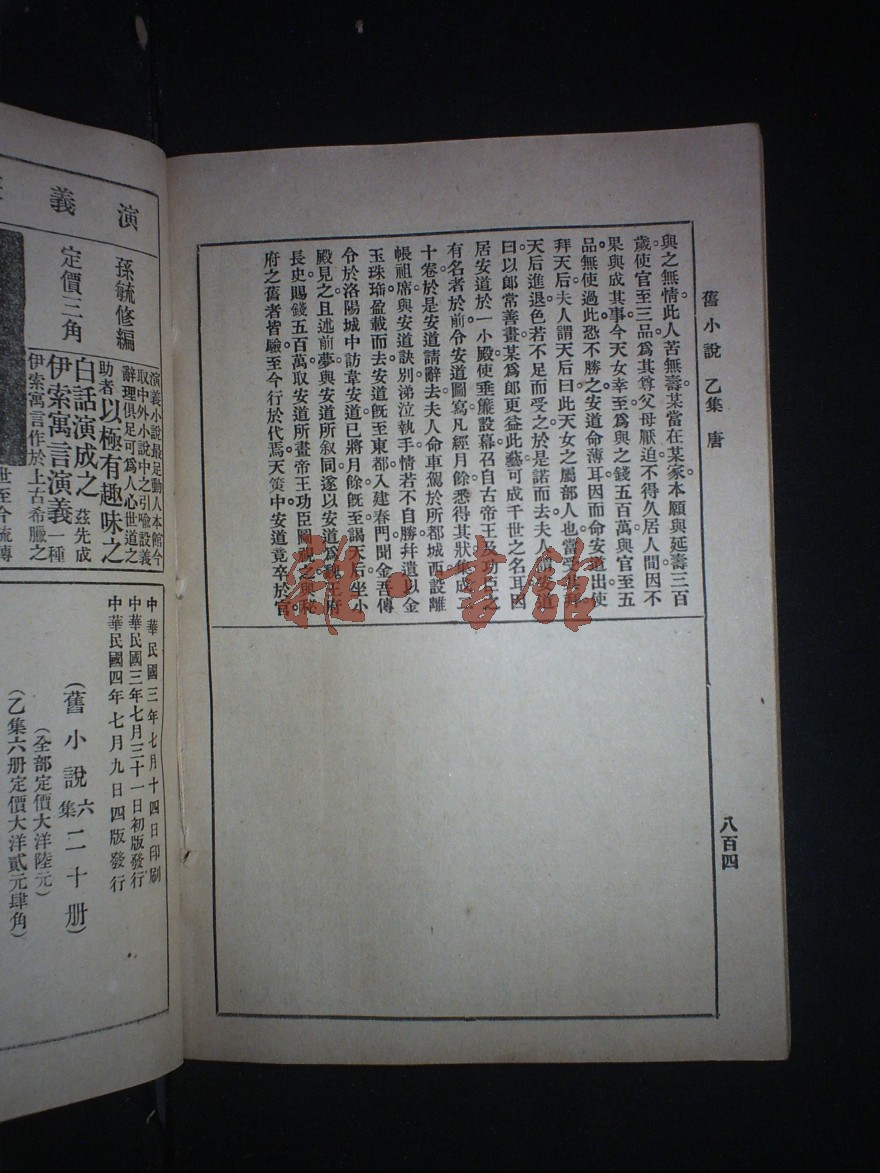 舊小說 乙集 唐
八百四
與之無情。此人苦無壽。某當在某家。本願與延壽三百
歲。使官至三品。爲其尊父母厭迫。不得久居人間。因不
果與成其事。今天女幸至。爲與之錢五百萬。與官至五
品。無使過此。恐不勝之。安道命薄耳。因而命安道出。使
拜天后。夫人謂天后曰。此天女之屬部人也。當受其拜。
天后進退色若不足而受之。於是諾而去。夫人謂安道
曰。以郎常善畫。某爲郎更益此藝。可成千世之名耳。因
居安道於一小殿。使垂簾設幕。召自古帝王及功臣之
有名者於前。令安道圖寫。凡經月餘。悉得其狀。集成二
十卷。於是安道請辭去。夫人命車駕於所都城西。設離
帳祖席。與安道訣別。涕泣執手。情若不自勝。幷遺以金
玉珠瑜。盈載而去。安道旣至東都。入建春門。聞金吾傳
令於洛陽城中訪韋安道已將月餘。旣至謁天后。坐小
殿見之。且述前夢。與安道所叙同。遂以安道爲魏王府
長史。賜錢五百萬。取安道所畫帝王功臣圖視之。與秘
府之舊者皆驗。至今行於代焉。天策中安道竟卒於官。
演義
孫毓修編
定價三角
演義小說最足動人本館今
取中外小說中之引喩設義
辭理俱足可為人心世道之
助者以極有趣味之
白話演成之 茲先成
伊索寓言演義一種
伊索寓言作於上古希臘之
世至今流傳
中華民國三年七月十四日印刷
中華民國三年七月三十一日初版發行
中華民國四年七月九日四版發行
（舊小說六集二十册）
（全部定價大洋陸元）
（乙集六册定價大洋貳元肆角）
雜·書館